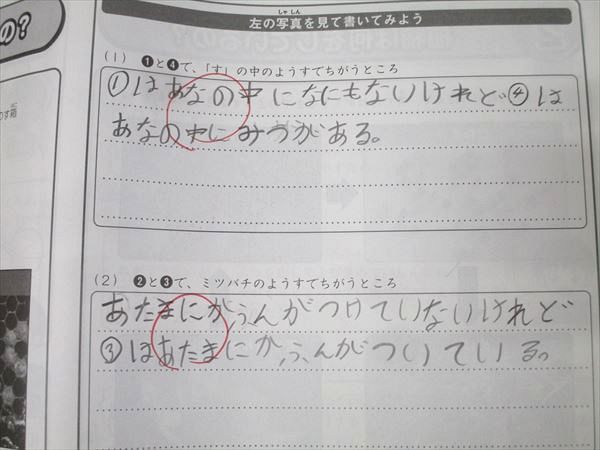 の?
しゃしん
左の写真を見て書いてみよう
(1) ❶と❹で、「す」の中のようすでちがうところ
①はあなの中になにもないけれど④は
あなの中にみつがある。
(2) ❷と❸で、ミツバチのようすでちがうところ
あたまにかふんがつけていないけれど
③はあたまにかふんがついている。